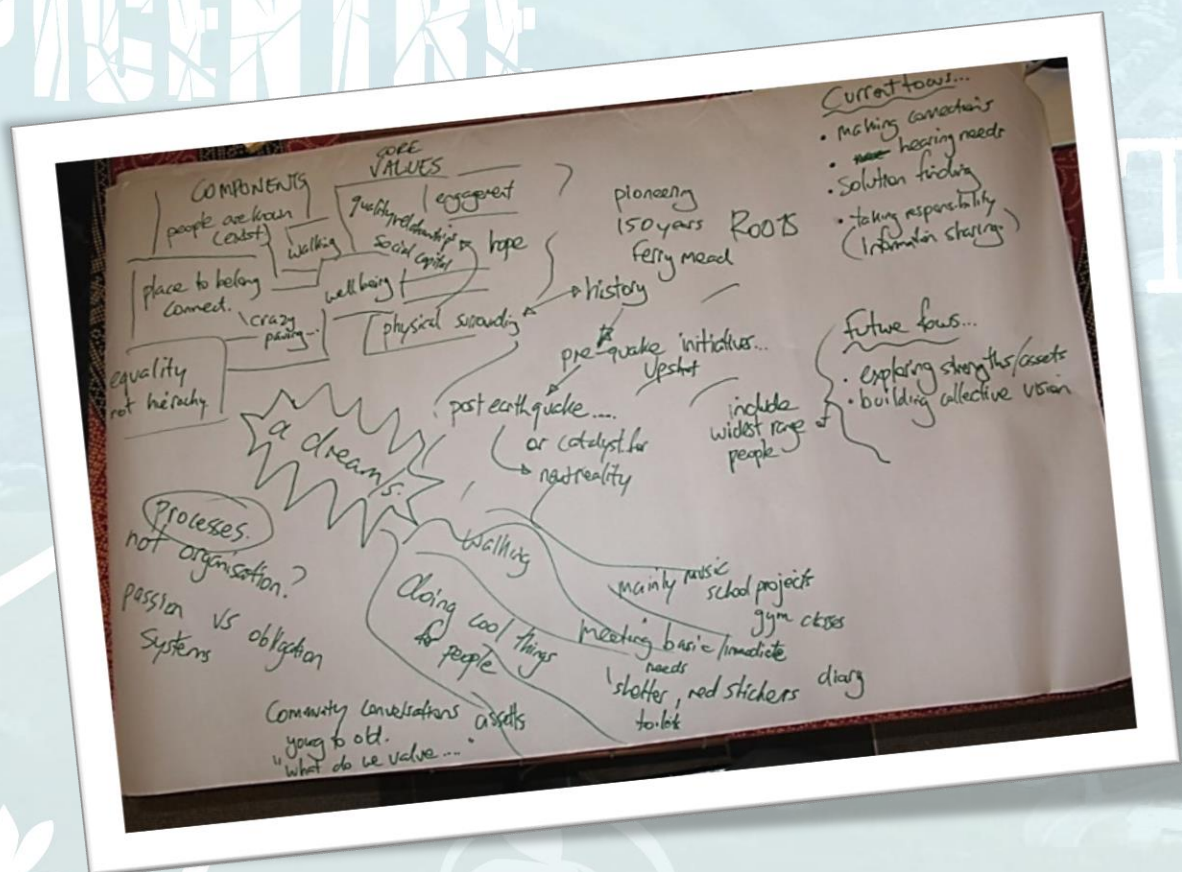 PICENTRE
T
COMPONENTS
people are known
(exist)
walking
place to belong
connect.
crazy
paving...
equality
not hierachy.
CORE
VALUES
engagement
quality relationships
social capital
hope
wellbeing
physical surrounding
pioneering
150 years ROOTS
ferry mead
history
pre-quake initiatives...
Upshot
post earthquake....
or catalyst for
new reality
include
widest range of
people
Current focus...
• making connections
• hearing needs
• Solution finding
• taking responsibility
(Information sharing.)
future focus...
• exploring strengths/assets
• building collective vision
a dream
Processes.
not organisation?
passion vs obligation
Systems
walking
doing cool things
for people
mainly music
school projects
gym classes
meeting basic/immediate
needs
shelter, red stickers diary
toilets
Community conversations assetts
young to old.
"what do we value...."